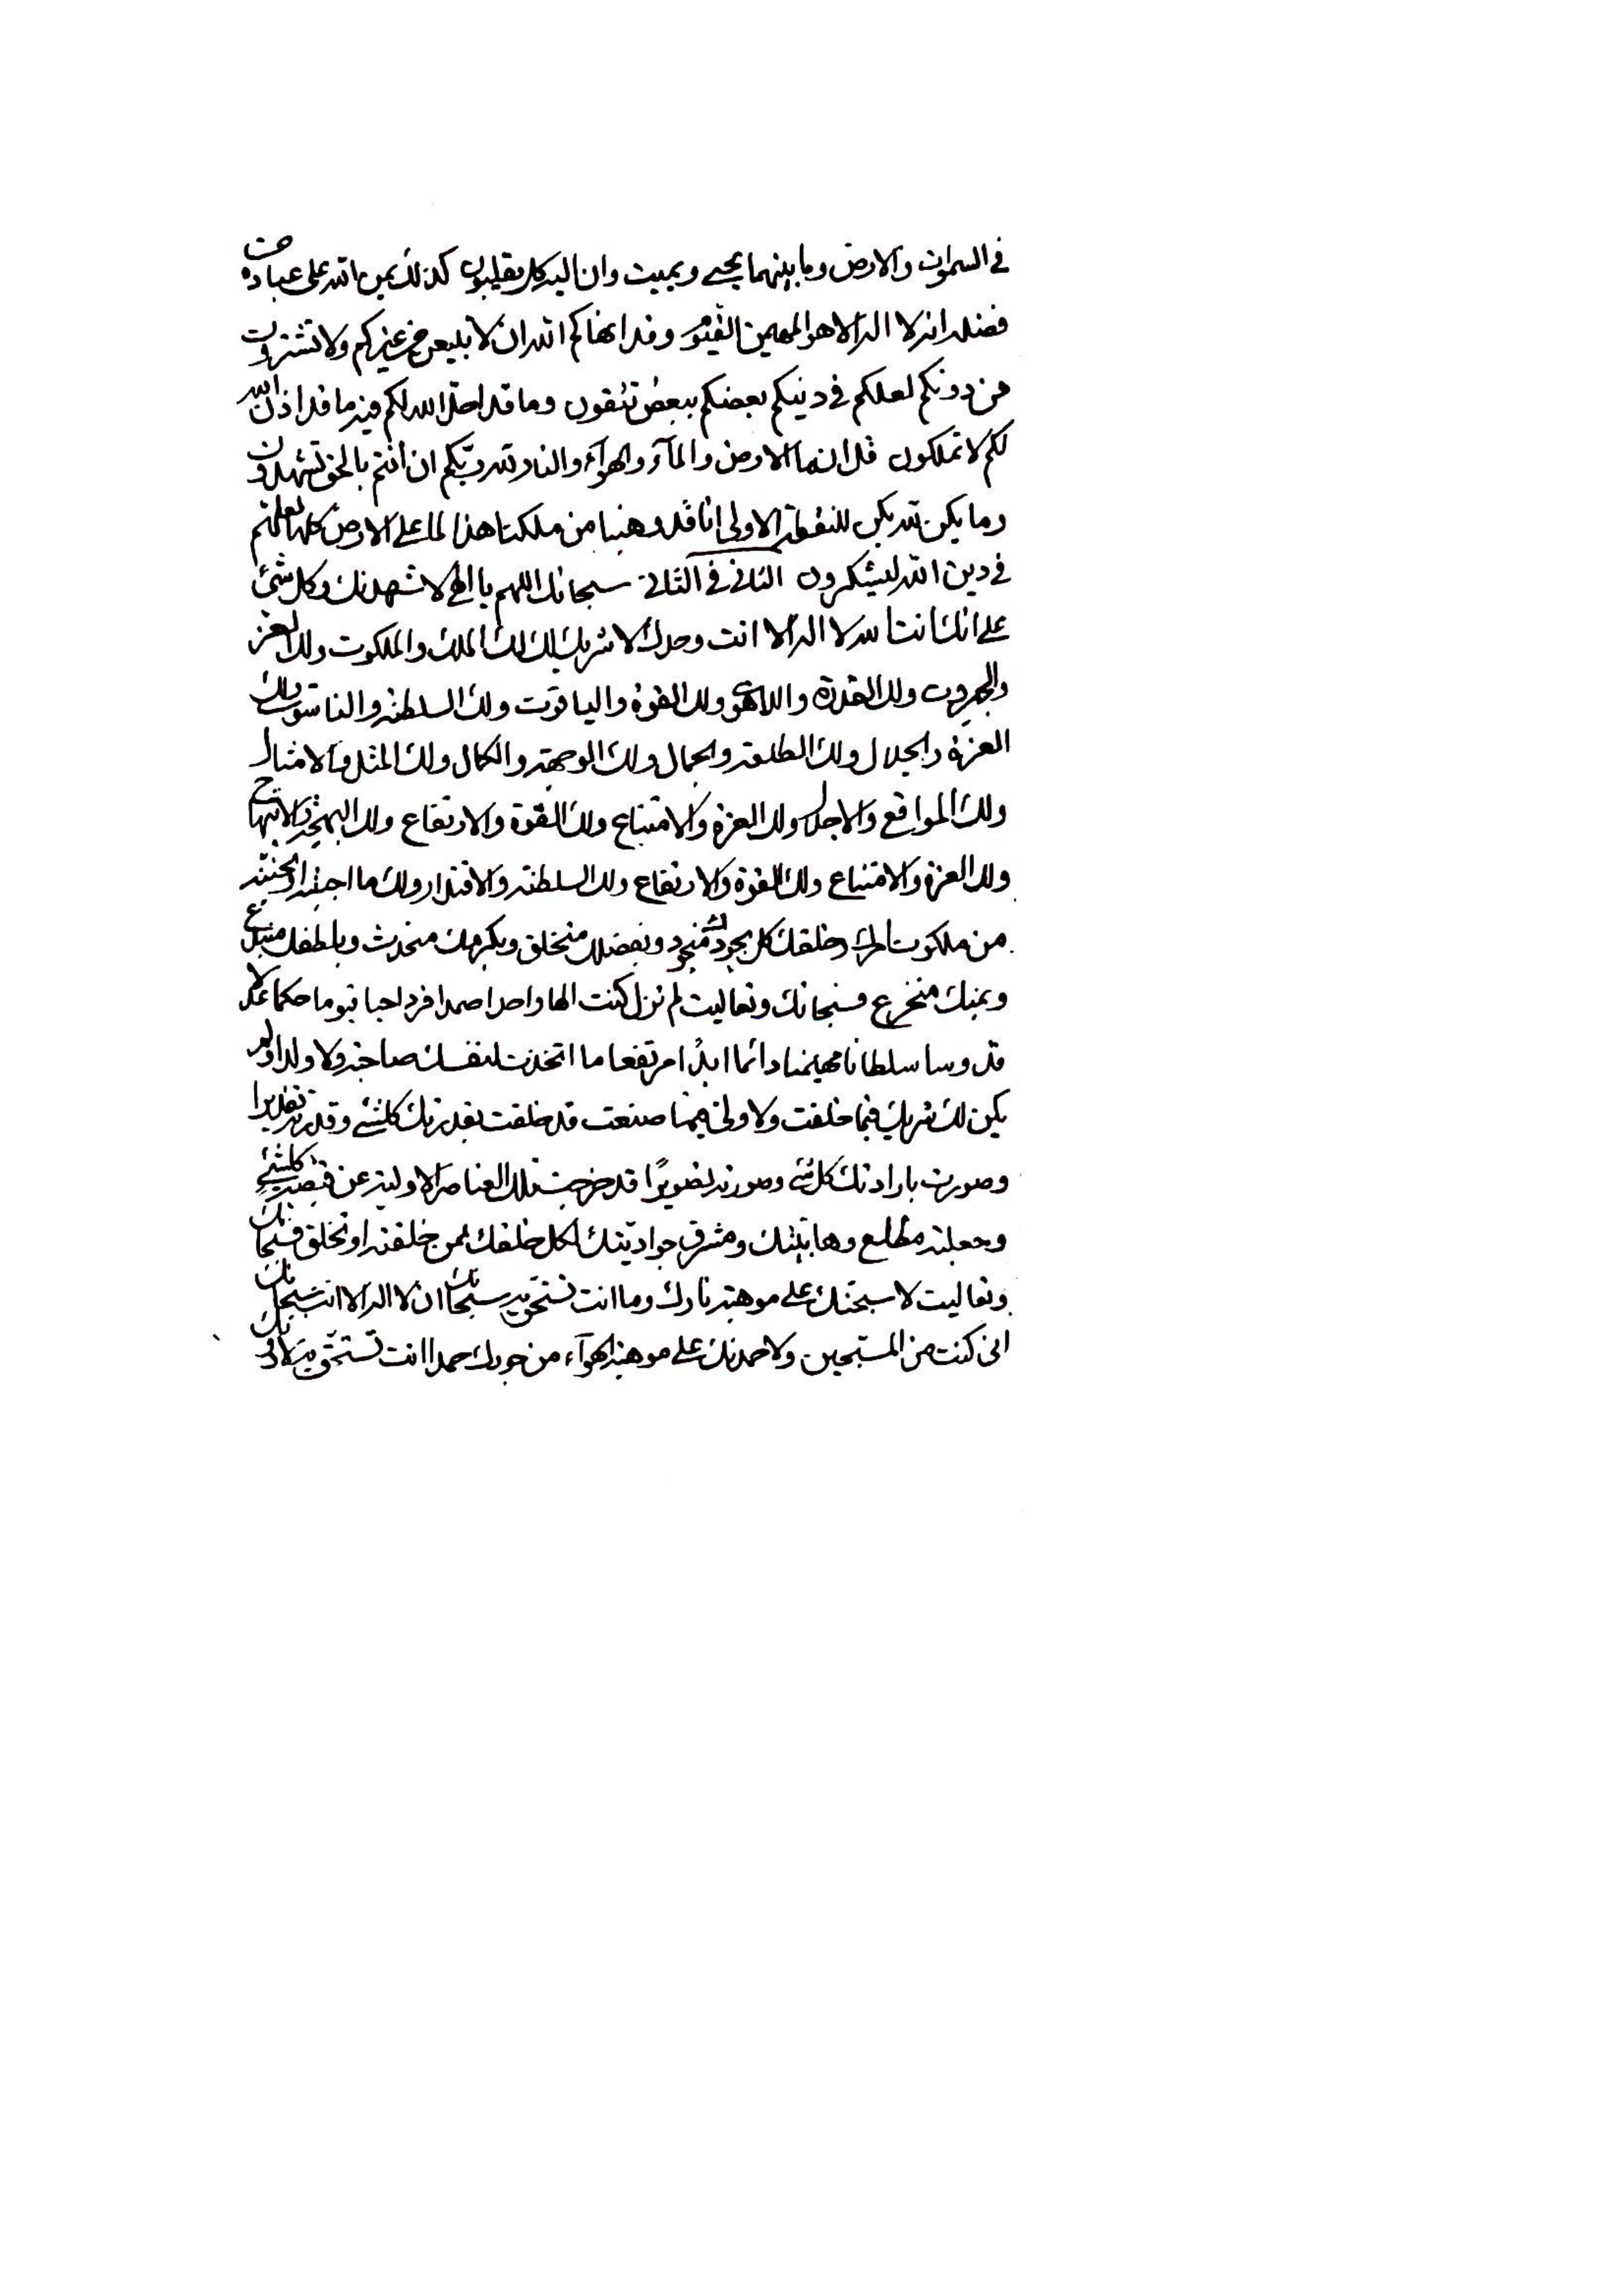 في السموات والارض وما بينهما يحيي ويميت وان اليه كل يقلبون كذلك يمن الله على عباده من
فضله انه لا اله الا هو المهيمن القيوم وقد انهاكم الله ان لا تبيعن من غيركم ولا تشترون
من دونكم لعلكم في دينكم بعضكم ببعض تتقون وما قد احل الله لكم فيه ما قد اذن الله
لكم لا تملكون قل انما الارض والمآء والهوآء والنار لله ربكم ان انتم بالحق تشهدون
وما يكن لله يكن للنقطة الاولى انا قد وهبنا من ملكنا هذا لما على الارض كلها لعلهم
في دين الله ليشكرون الثاني في الثاني سبحانك اللهم يا الهي لاشهدنك وكل شئ
على انك انت الله لا اله الا انت وحدك لا شريك لك لك الملك والملكوت ولك العز
والجبروت ولك القدرة واللاهوت ولك القوة والياقوت ولك السلطنة والناسوت ولك
العزة والجلال ولك الطلعة والجمال ولك الوجهة والكمال ولك المثل والامثال
ولك المواقع والاجلال ولك العزة والامتناع ولك القوة والارتفاع ولك البهجة والابتهاج
ولك العزة والامتناع ولك القوة والارتفاع ولك السلطنة والاقتدار ولك ما احببته او تحبنه
من ملكوت امرك وخلقك كل بجودك منجود وبفضلك منخلق وبكرمك منحدث وبلطفك منبدع
وبمنك منخرع فسبحانك وتعاليت لم تزل كنت الها واحدا صمدا فردا حيا قيوما حكما عدلا
قدوسا سلطانا مهيمنا دائما ابدا مرتفعا ما اتخذت لنفسك صاحبة ولا ولدا ولم
يكن لك شريك فيما خلقت ولا ولي فيما صنعت قد خلقت بقدرتك كلشئ وقدرته تقديرا
وصورت بارادتك كل شئ وصورته تصويرا قد خرجت تلك العناصر الاولية عن قبضة كلشئ
وجعلته مطلع وهابيتك ومشرق جواديتك لكل خلقك ممن خلقته او تخلق فسبحانك
وتعاليت لاسبحنك على موهبة نارك وما انت تستحق به سبحانك ان لا اله الا انت سبحانك
اني كنت من المسبحين ولاحمدنك على موهبة الهوآء من جودك حمدا انت تستحق به